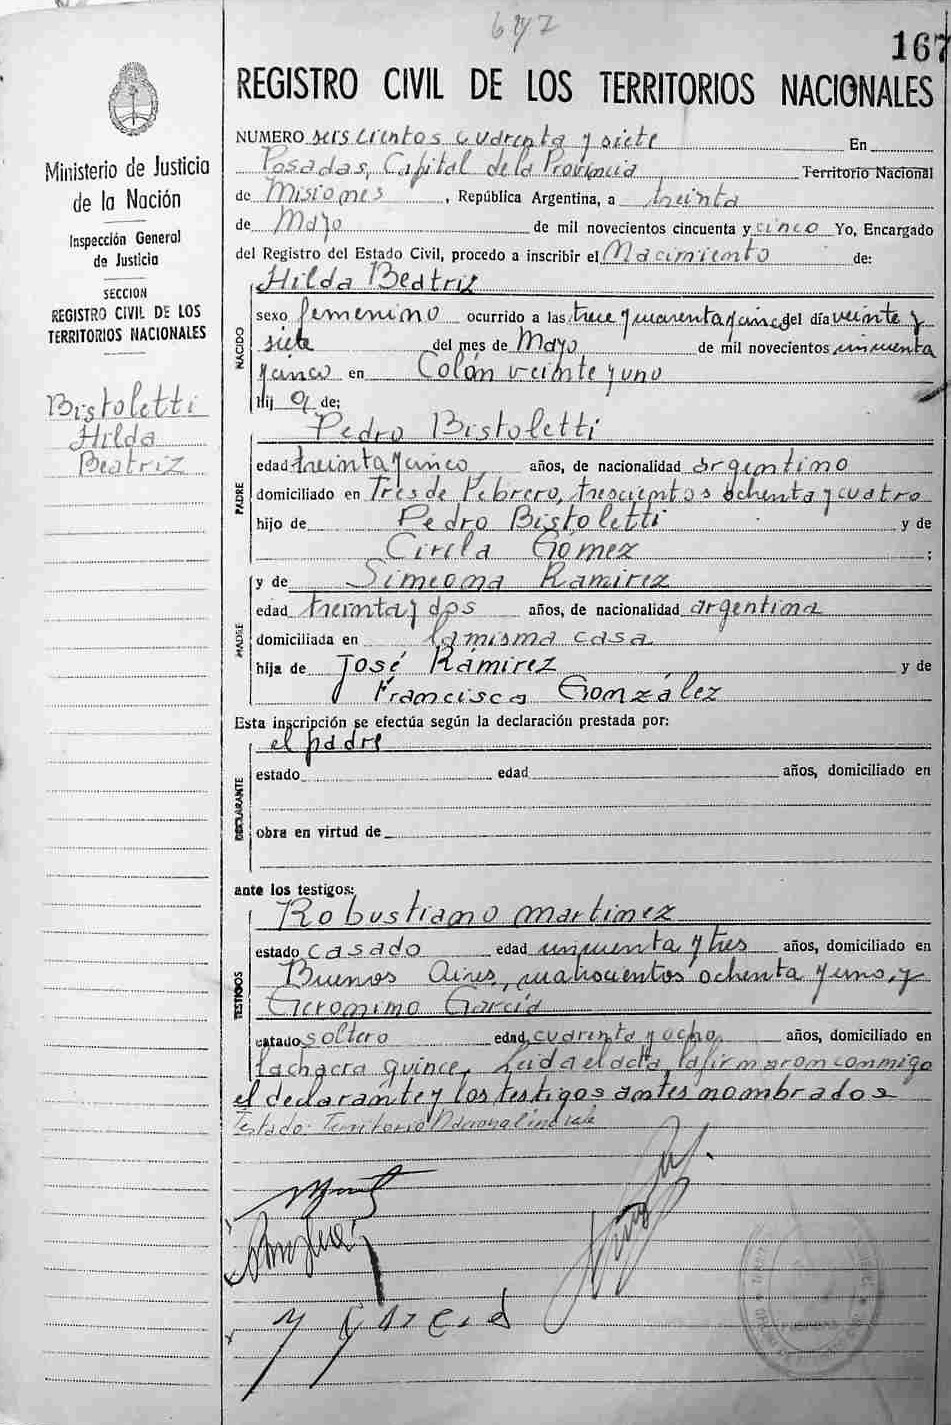 647
167
REGISTRO CIVIL DE LOS TERRITORIOS NACIONALES
Ministerio de Justicia
de la Nación
Inspección General
de Justicia
SECCION
REGISTRO CIVIL DE LOS
TERRITORIOS NACIONALES
Bistoletti
Hilda
Beatriz
NUMERO seiscientos cuarenta y siete En
Posadas, Capital de la Provincia Territorio Nacional
de Misiones, República Argentina, a treinta
de Mayo de mil novecientos cincuenta y cinco Yo, Encargado
del Registro del Estado Civil, procedo a inscribir el Nacimiento de:
Hilda Beatriz
NACIDO
sexo femenino ocurrido a las trece y cuarenta y cinco del día veinte y
siete del mes de Mayo de mil novecientos cincuenta
y cinco en Colón veinte y uno
Hij a de:
Pedro Bistoletti
PADRE
edad treinta y cinco años, de nacionalidad argentino
domiciliado en Tres de Febrero, trescientos ochenta y cuatro
hijo de Pedro Bistoletti y de
Cirila Gómez ;
y de Simeona Ramirez
MADRE
edad treinta y dos años, de nacionalidad argentina
domiciliada en la misma casa
hija de José Ramirez y de
Francisca González
Esta inscripción se efectúa según la declaración prestada por:
el padre
DECLARANTE
estado edad años, domiciliado en
obra en virtud de
ante los testigos:
Robustiano Martinez
TESTIGOS
estado casado edad cincuenta y tres años, domiciliado en
Buenos Aires, cuatrocientos ochenta y uno, y
Geronimo García
estado soltero edad cuarenta y ocho años, domiciliado en
la chacra quince. Leida el acta, la firmaron conmigo
el declarante y los testigos antes nombrados
Testado: Territorio Nacional
y García